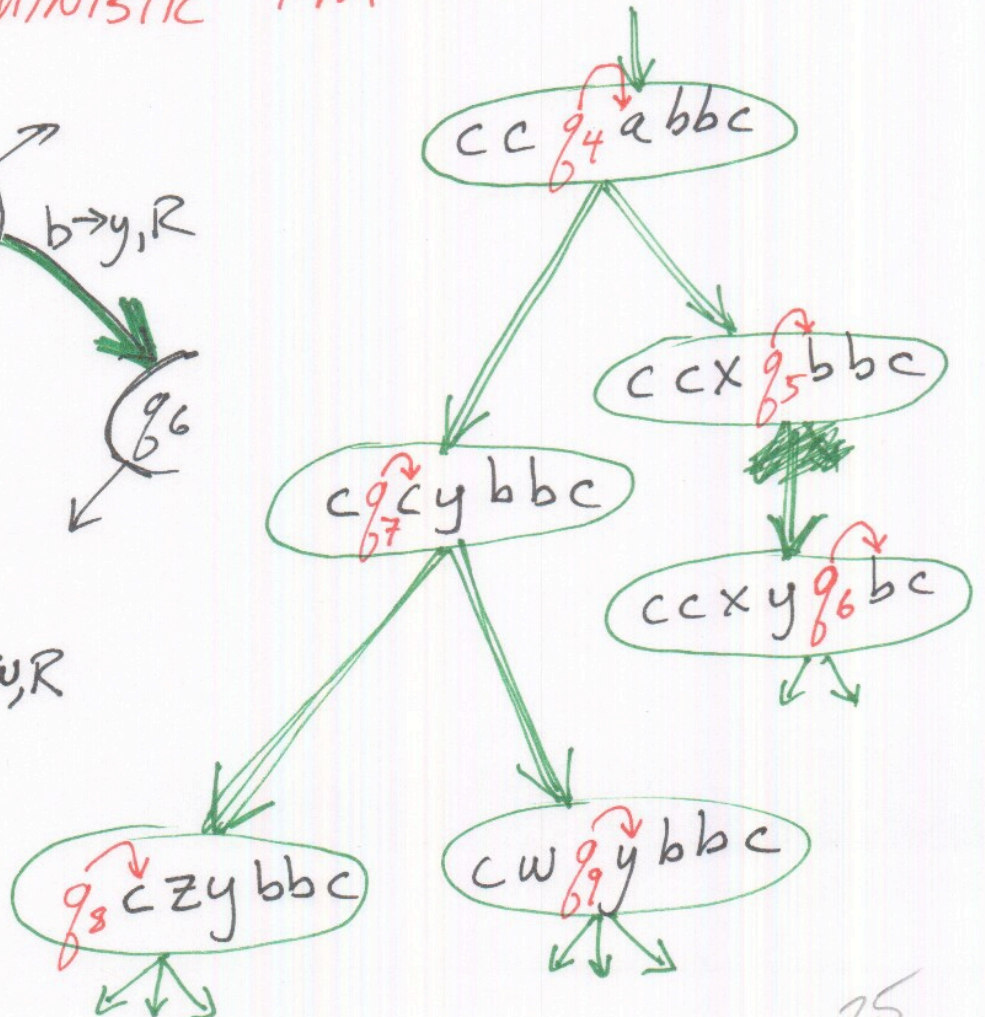 b→y,R
q6
,R
cc q4 abbc
ccx q5 bbc
c q7 cybbc
ccxy q6 bc
q8 czybbc
cw q9 ybbc
25